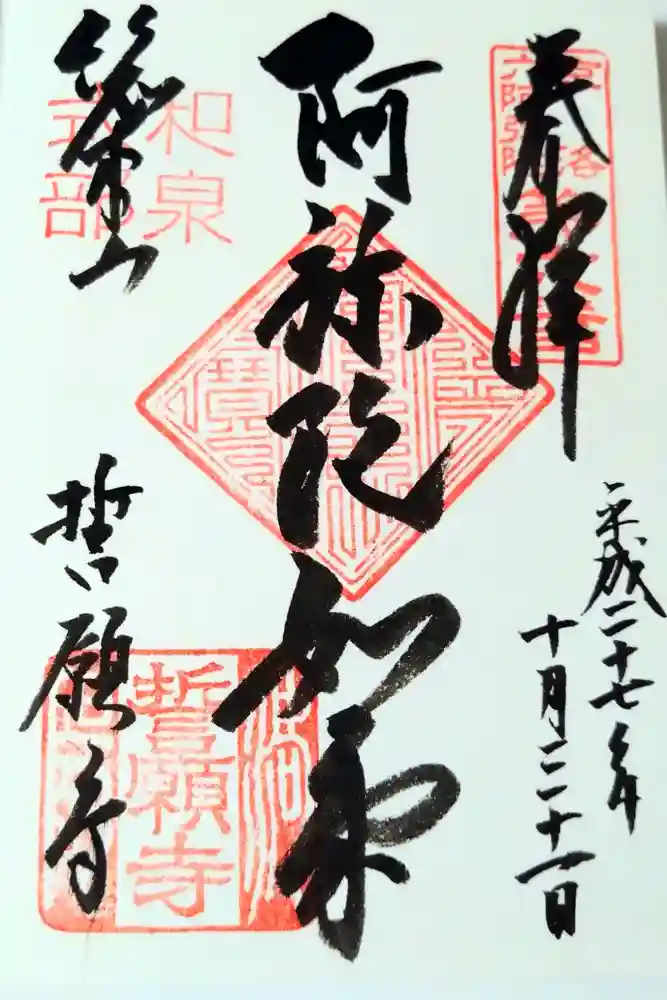 奉拝
平成二十七年
十月三十一日
阿弥陀如来
総本山
誓願寺
和泉
式部
誓願寺